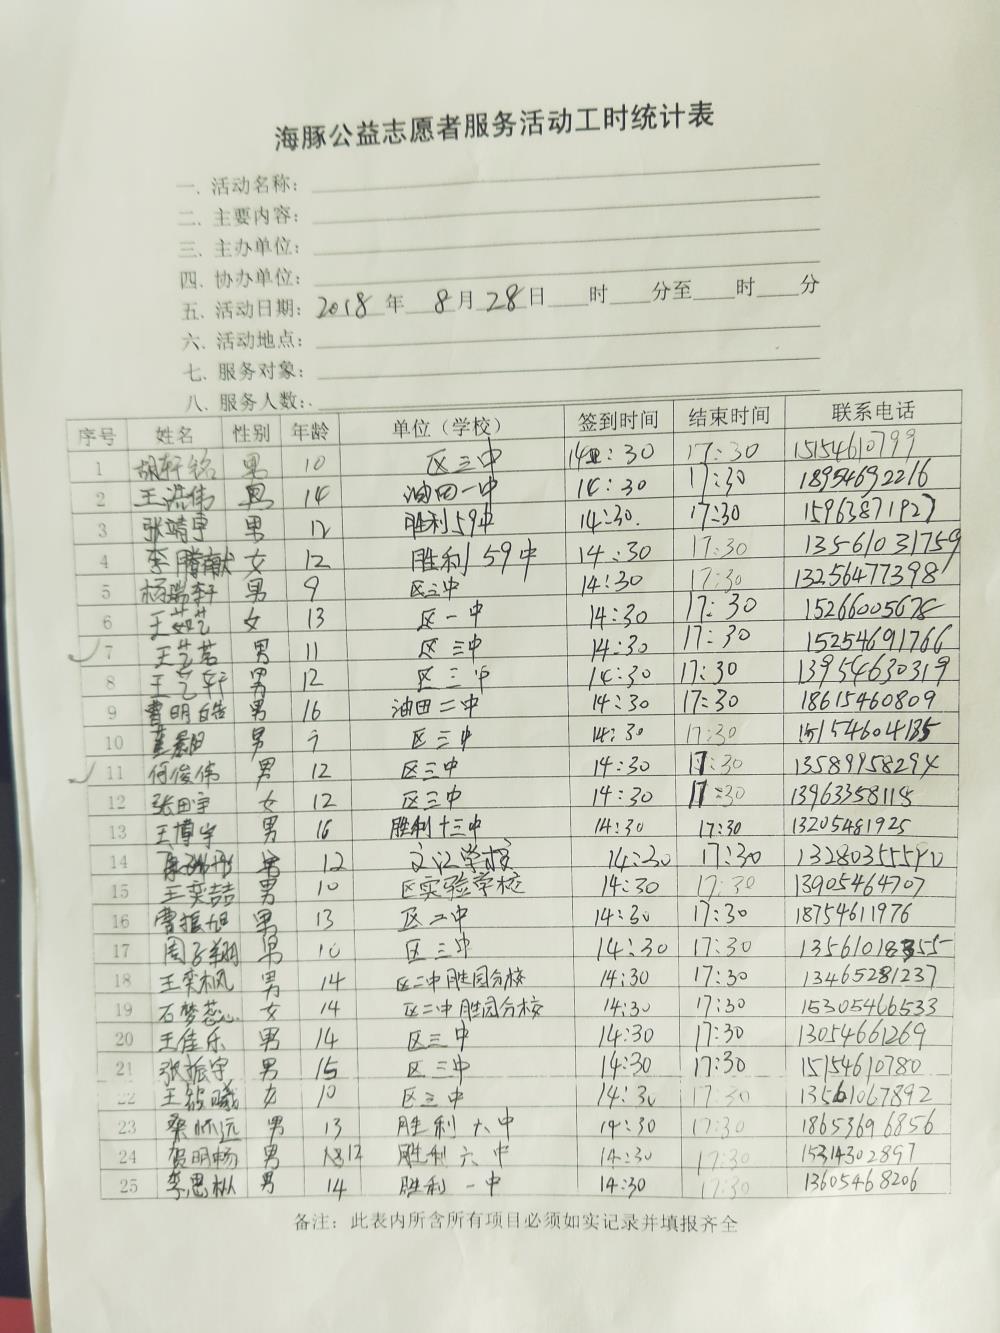 海豚公益志愿者服务活动工时统计表
一. 活动名称:
二. 主要内容:
三. 主办单位:
四. 协办单位:
五. 活动日期: 2018 年 8 月 28 日 时 分至 时 分
六. 活动地点:
七. 服务对象:
八. 服务人数:
序号 姓名 性别 年龄 单位（学校） 签到时间 结束时间 联系电话
1 胡轩铭 男 10 区三中 14:30 17:30 15154610799
2 王洪伟 男 14 油田一中 14:30 17:30 18954692216
3 张靖宇 男 12 胜利59中 14:30. 17:30 15963871927
4 李腾献 女 12 胜利59中 14:30 17:30 13561031759
5 杨瑞轩 男 9 区三中 14:30 17:30 13256477398
6 王艺 女 13 区一中 14:30 17:30 15266005678
7 王艺茗 男 11 区三中 14:30 17:30 15254691766
8 王艺轩 男 12 区三中 14:30 17:30 13954630319
9 曹明皓 男 16 油田二中 14:30 17:30 18615460809
10 男 区三中 14:30 17:30
11 何俊伟 男 12 区三中 14:30 17:30 13589958294
12 张田宇 女 12 区三中 14:30 17:30 13963358118
13 王博宇 男 16 胜利十三中 14:30 17:30 13205481925
14 男 12 文汇学校 14:30 17:30
15 王奕喆 男 10 区实验学校 14:30 17:30 13905464707
16 曹振旭 男 13 区二中 14:30 17:30 18754611976
17 周子翔 男 10 区三中 14:30 17:30 13561018355
18 王奕枫 男 14 区二中胜园分校 14:30 17:30 13465281237
19 石梦蕊 女 14 区二中胜园分校 14:30 17:30 15305466533
20 王佳乐 男 14 区三中 14:30 17:30 13054661269
21 张振宇 男 15 区三中 14:30 17:30 15154610780
22 王曦 女 10 区三中 14:30 17:30 13561067892
23 桑怀远 男 13 胜利六中 14:30 17:30 18653696856
24 贺明畅 男 12 胜利六中 14:30 17:30 15314302897
25 李思枞 男 14 胜利一中 14:30 17:30 13605468206
备注：此表内所含所有项目必须如实记录并填报齐全